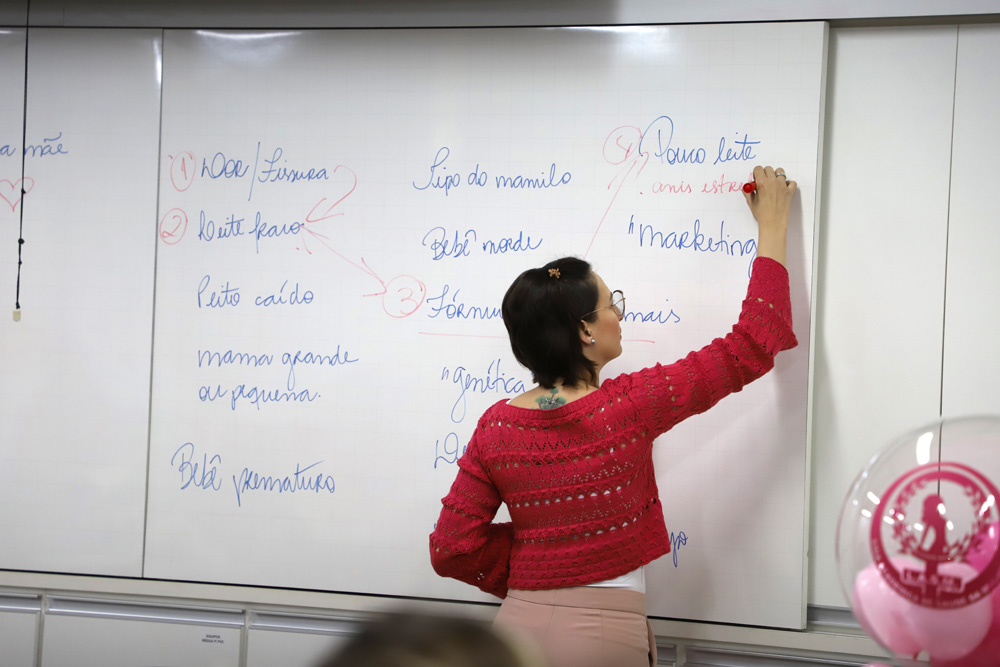 a mãe
1 DOR/Fissura
2 Leite fraco
Peito caído
mama grande
ou pequena.
Bebê prematuro
Tipo do mamilo
Bebê morde
3 Fórmu mais
"genética
4 Pouco leite
anis estre
"marketing